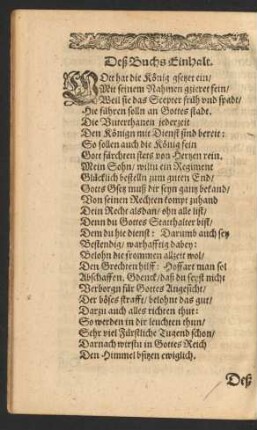 Deß Buchs Einhalt.
GOtt hat die König gsetzt ein/
Mit seinem Nahmen gzieret fein/
Weil sie das Scepter früh vnd spadt/
Hie führen solln an Gottes stadt.
Die Vnterthanen jederzeit
Den Könign mit Dienst sind bereit:
So sollen auch die König fein
Gott fürchten stets von Hertzen rein.
Mein Sohn/ wiltu ein Regiment
Glücklich bestelln zum guten End/
Gotts Gsetz muß dir seyn gantz bekand/
Von seinen Rechten kompt zuhand
Dein Recht alsdan/ ohn alle list/
Denn du Gottes Statthalter bist/
Dem du hie dienst: Darumb auch sey
Bestendig/ warhafftig dabey:
Belohn die frommen allzeit wol/
Den Grechten hilff: Hoffart man sol
Abschaffen. Gdenck/ daß du seyst nicht
Verborgn für Gottes Angesicht/
Der böses strafft/ belohnt das gut/
Darzu auch alles richten thut:
So werden in dir leuchten thun/
Sehr viel Fürstliche Tugend schon/
Darnach wirstu in Gottes Reich
Den Himmel bsitzen ewiglich.
Deß